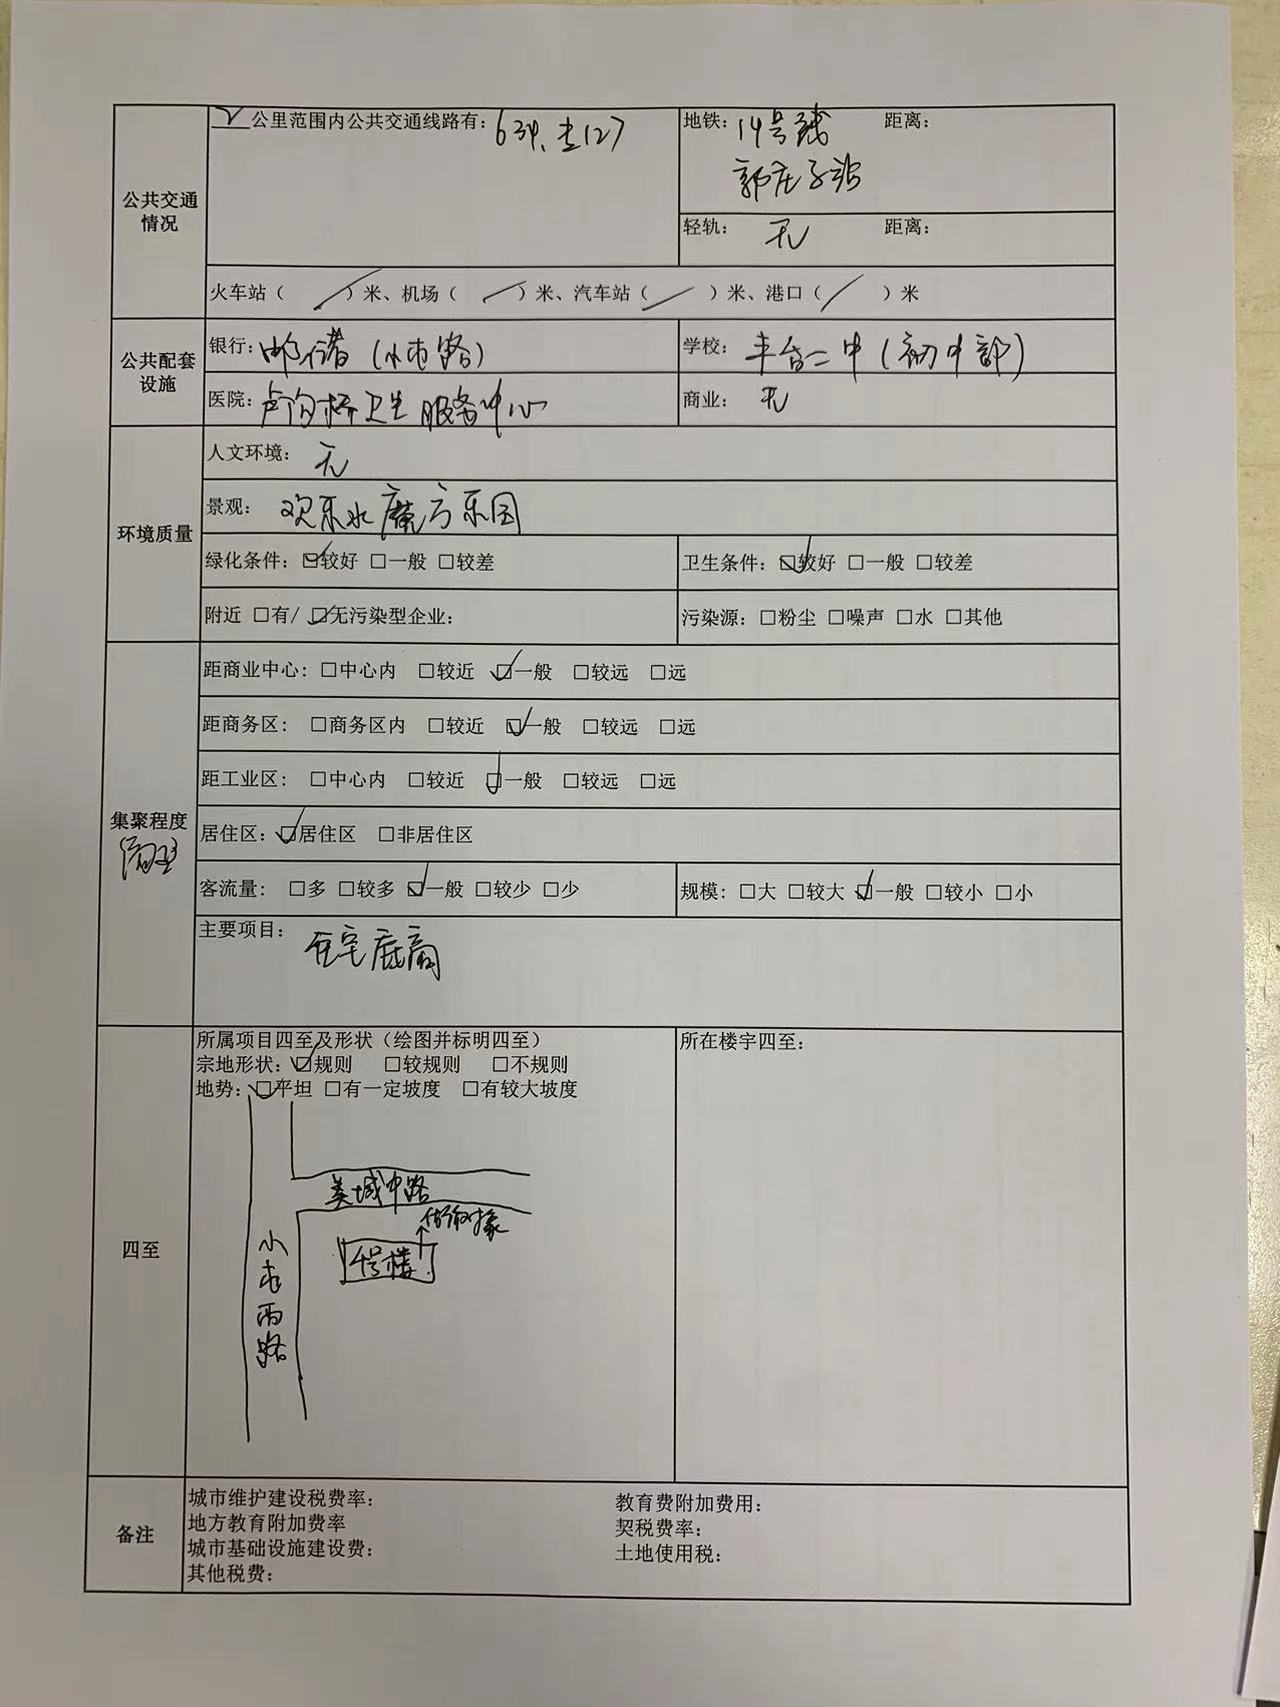 公共交通
情况
2公里范围内公共交通线路有：634、专127
地铁：14号线 距离：
郭庄子站
轻轨：无 距离：
火车站（ ）米、机场（ ）米、汽车站（ ）米、港口（ ）米
公共配套
设施
银行：邮储（小屯路）
学校：丰台二中（初中部）
医院：卢沟桥卫生服务中心
商业：无
环境质量
人文环境：无
景观：欢乐水魔方乐园
绿化条件：☑较好 □一般 □较差
卫生条件：☑较好 □一般 □较差
附近 □有/☑无污染型企业：
污染源：□粉尘 □噪声 □水 □其他
集聚程度
距商业中心：□中心内 □较近 ☑一般 □较远 □远
距商务区：□商务区内 □较近 ☑一般 □较远 □远
距工业区：□中心内 □较近 ☑一般 □较远 □远
居住区：☑居住区 □非居住区
客流量：□多 □较多 ☑一般 □较少 □少
规模：□大 □较大 ☑一般 □较小 □小
主要项目：住宅底商
四至
所属项目四至及形状（绘图并标明四至）
宗地形状：☑规则 □较规则 □不规则
地势：☑平坦 □有一定坡度 □有较大坡度
美域中路
估价对象
号楼
小屯西路
所在楼宇四至：
备注
城市维护建设税费率：
教育费附加费用：
地方教育附加费率
契税费率：
城市基础设施建设费：
土地使用税：
其他税费：